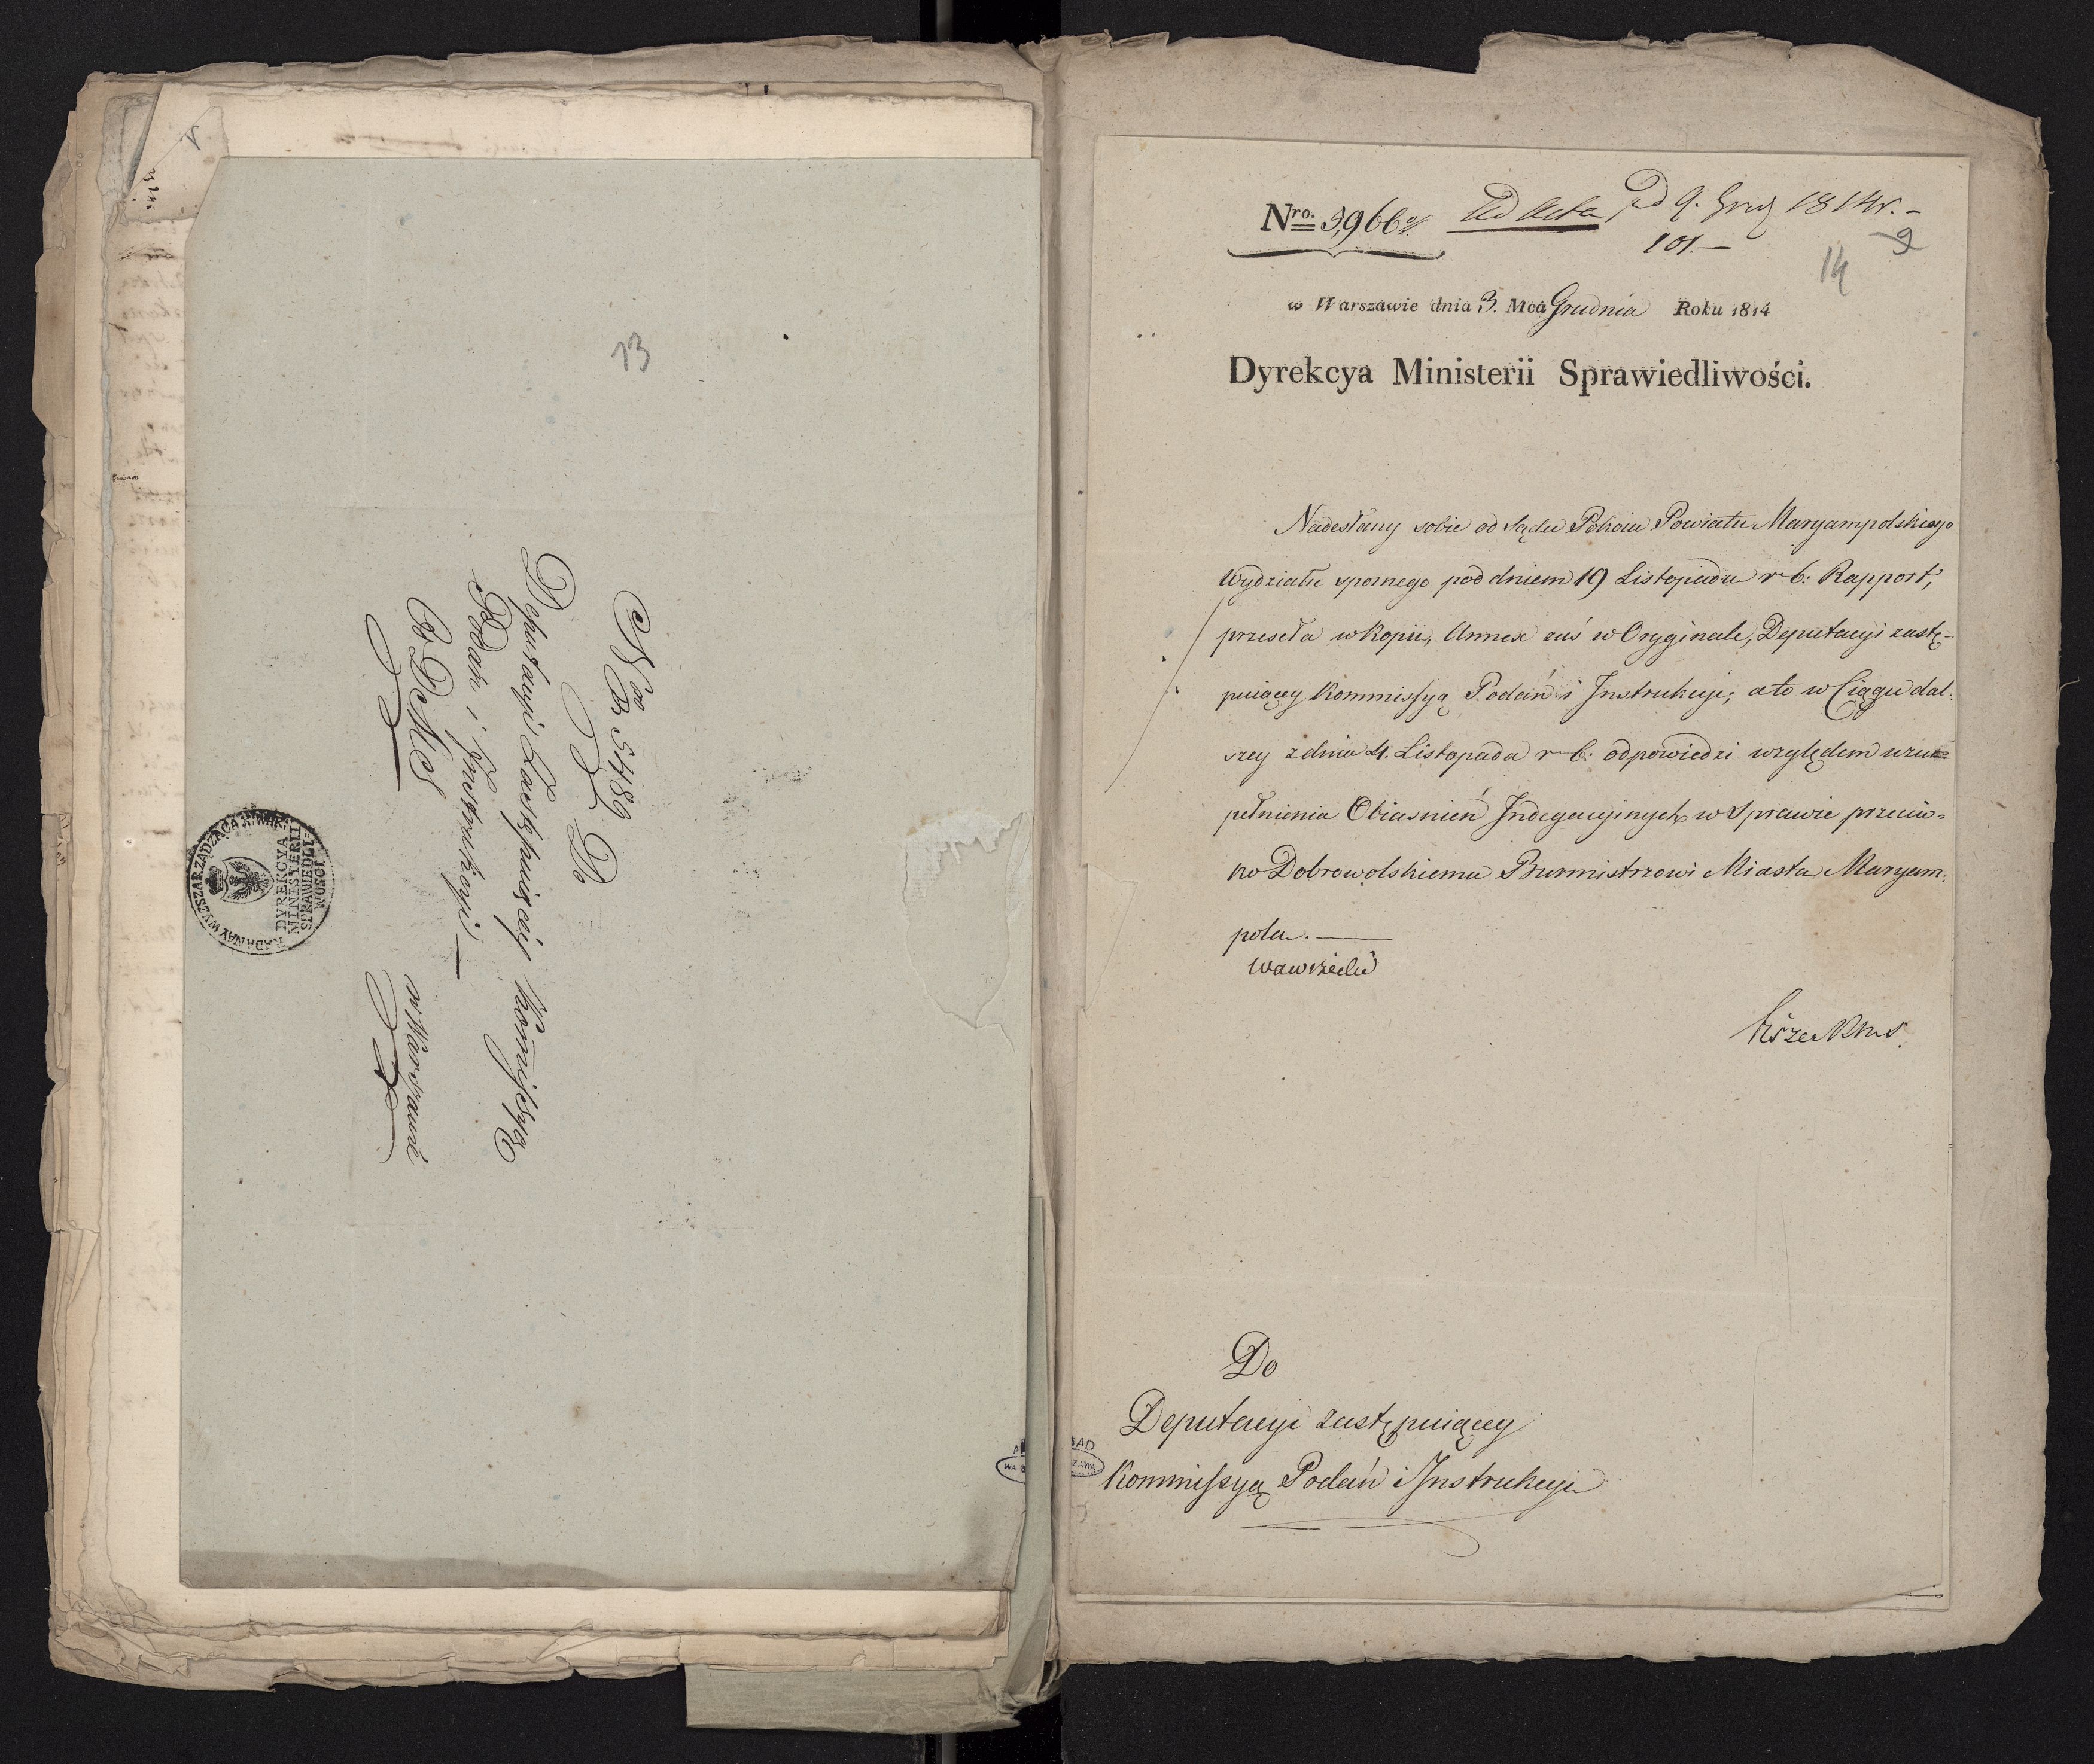 13
Nro B 5489 Do
Deputacyi Zastępuiącéy Kom̄issyą
Podań i Instrukcyi
w Warszawie
RADA NAYWYZSZA RZĄDZĄCA X. WAR.
DYREKCYA
MINISTERII
SPRAWIEDLI-
WOSCI
Nro. 5,966
Ad Acta pd 9. Grud 1814r.-
101.-
9
14
w Warszawie dnia 3. Mca Grudnia Roku 1814
Dyrekcya Ministerii Sprawiedliwości.
Nadesłany sobie od Sądu Pokoiu Powiatu Maryampolskiego
Wydziału spornego pod dniem 19 Listopada r b: Rapport,
przeseła w Kopii, Annex zaś w Oryginale, Deputacyi zastę-
puiącey Kommissyą Podań i Instrukcyi; a to w Ciągu dal-
szey z dnia 4. Listopada r b: odpowiedzi względem uzu-
pełnienia Obiasnień Indegacyinych w Sprawie przeciw-
ko Dobrowolskiemu Burmistrzowi Miasta Maryam-
pola.
Wawrzecki
Do
Deputacyi zastępuiącey
Kommissyą Podań i Instrukcyi